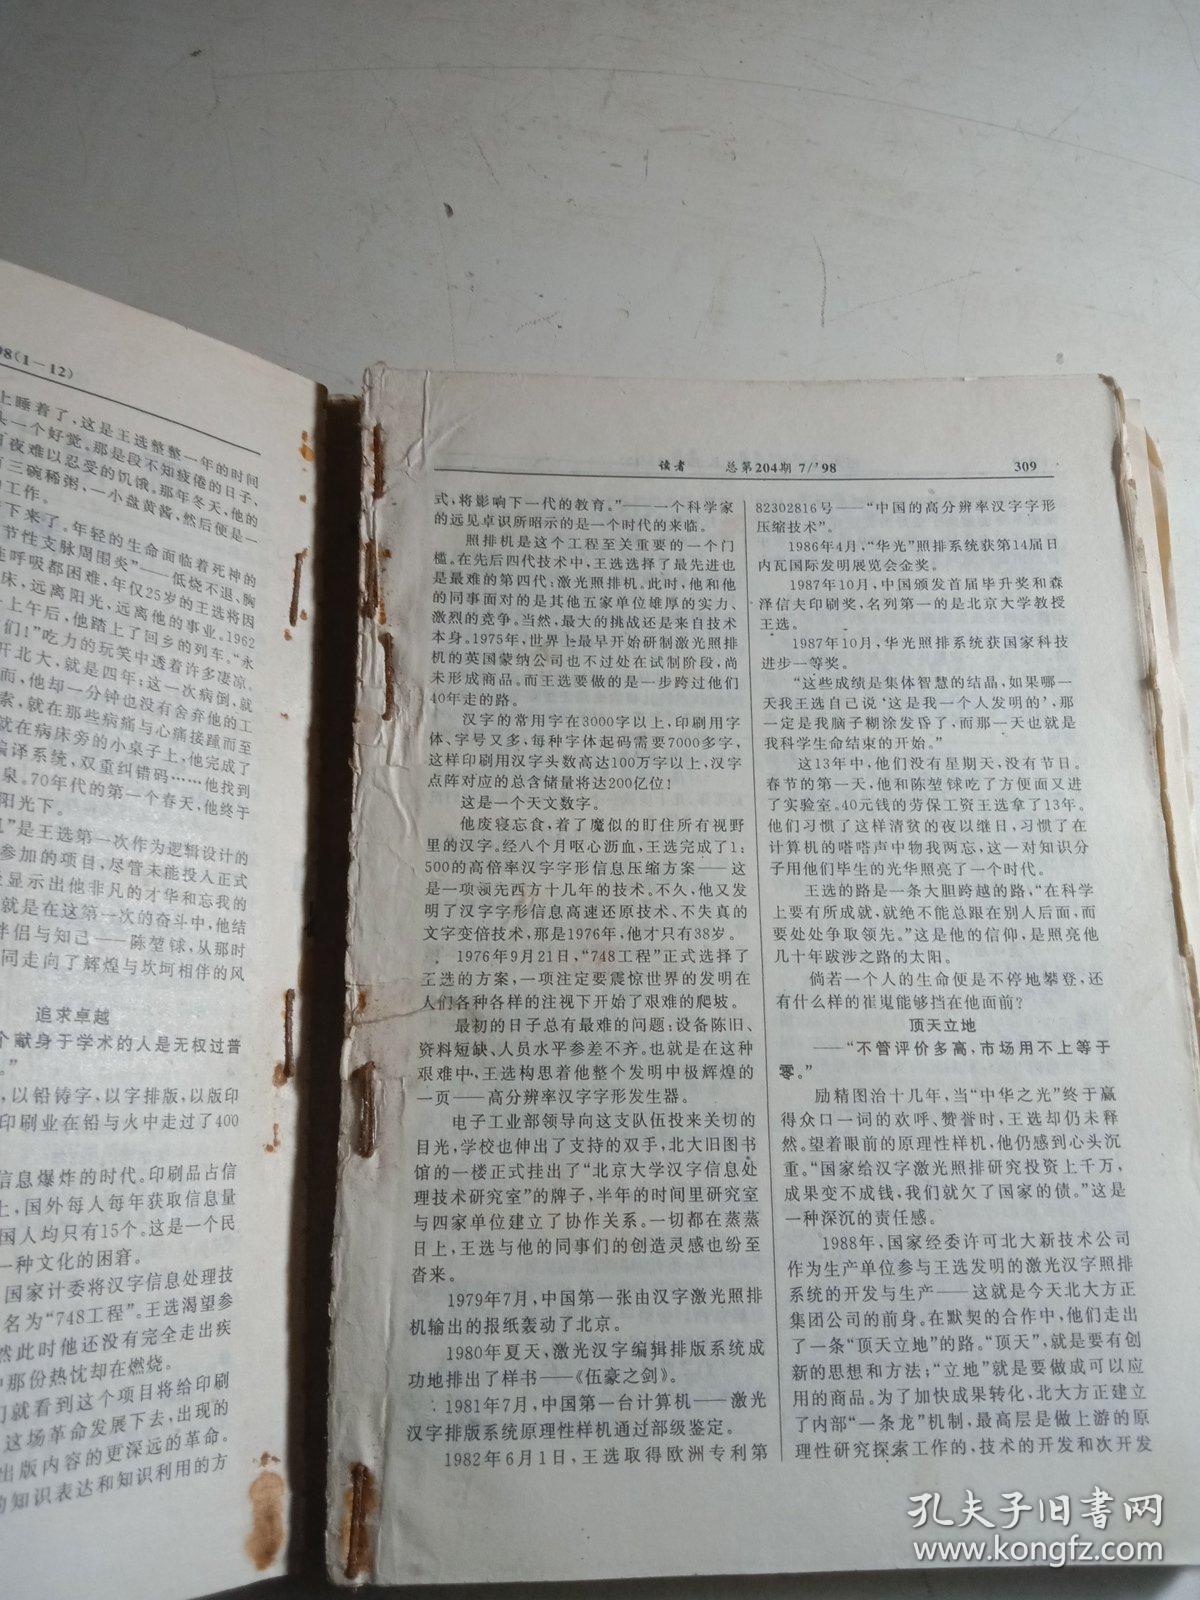 98(1－12)
上睡着了，这是王选整整一年的时间
头一个好觉。那是段不知疲倦的日子、
夜难以忍受的饥饿。那年冬天，他的
三碗稀粥，一小盘黄酱，然后便是一
工作。
下来了。年轻的生命面临着死神的
节性支脉周围炎”——低烧不退、胸
连呼吸都困难，年仅25岁的王选将因
床，远离阳光，远离他的事业。1962
上午后，他踏上了回乡的列车。“永
们！”吃力的玩笑中透着许多凄凉。
开北大，就是四年；这一次病倒，就
而，他却一分钟也没有舍弃他的工
索，就在那些病痛与心痛接踵而至
就在病床旁的小桌子上，他完成了
编译系统，双重纠错码……他找到
泉。70年代的第一个春天，他终于
阳光下。
”是王选第一次作为逻辑设计的
参加的项目，尽管未能投入正式
显示出他非凡的才华和忘我的
就是在这第一次的奋斗中，他结
伴侣与知己——陈堃銶，从那时
同走向了辉煌与坎坷相伴的风
追求卓越
个献身于学术的人是无权过普
。”
，以铅铸字，以字排版，以版印
印刷业在铅与火中走过了400
信息爆炸的时代。印刷品占信
上，国外每人每年获取信息量
国人均只有15个。这是一个民
一种文化的困窘。
国家计委将汉字信息处理技
名为“748工程”。王选渴望参
然此时他还没有完全走出疾
那份热忱却在燃烧。
们就看到这个项目将给印刷
这场革命发展下去，出现的
出版内容的更深远的革命。
的知识表达和知识利用的方
读者 总第204期 7/’98 309
式，将影响下一代的教育。”——一个科学家
的远见卓识所昭示的是一个时代的来临。
照排机是这个工程至关重要的一个门
槛。在先后四代技术中，王选选择了最先进也
是最难的第四代：激光照排机。此时，他和他
的同事面对的是其他五家单位雄厚的实力、
激烈的竞争。当然，最大的挑战还是来自技术
本身。1975年，世界上最早开始研制激光照排
机的英国蒙纳公司也不过处在试制阶段，尚
未形成商品。而王选要做的是一步跨过他们
40年走的路。
汉字的常用字在3000字以上，印刷用字
体、字号又多，每种字体起码需要7000多字，
这样印刷用汉字头数高达100万字以上，汉字
点阵对应的总含储量将达200亿位！
这是一个天文数字。
他废寝忘食，着了魔似的盯住所有视野
里的汉字。经八个月呕心沥血，王选完成了1：
500的高倍率汉字字形信息压缩方案——这
是一项领先西方十几年的技术。不久，他又发
明了汉字字形信息高速还原技术、不失真的
文字变倍技术，那是1976年，他才只有38岁。
1976年9月21日，“748工程”正式选择了
王选的方案，一项注定要震惊世界的发明在
人们各种各样的注视下开始了艰难的爬坡。
最初的日子总有最难的问题：设备陈旧、
资料短缺、人员水平参差不齐。也就是在这种
艰难中，王选构思着他整个发明中极辉煌的
一页——高分辨率汉字字形发生器。
电子工业部领导向这支队伍投来关切的
目光，学校也伸出了支持的双手，北大旧图书
馆的一楼正式挂出了“北京大学汉字信息处
理技术研究室”的牌子，半年的时间里研究室
与四家单位建立了协作关系。一切都在蒸蒸
日上，王选与他的同事们的创造灵感也纷至
沓来。
1979年7月，中国第一张由汉字激光照排
机输出的报纸轰动了北京。
1980年夏天，激光汉字编辑排版系统成
功地排出了样书——《伍豪之剑》。
1981年7月，中国第一台计算机——激光
汉字排版系统原理性样机通过部级鉴定。
1982年6月1日，王选取得欧洲专利第
82302816号——“中国的高分辨率汉字字形
压缩技术”。
1986年4月，“华光”照排系统获第14届日
内瓦国际发明展览会金奖。
1987年10月，中国颁发首届毕升奖和森
泽信夫印刷奖，名列第一的是北京大学教授
王选。
1987年10月，华光照排系统获国家科技
进步一等奖。
“这些成绩是集体智慧的结晶，如果哪一
天我王选自己说‘这是我一个人发明的’，那
一定是我脑子糊涂发昏了，而那一天也就是
我科学生命结束的开始。”
这13年中，他们没有星期天，没有节日。
春节的第一天，他和陈堃銶吃了方便面又进
了实验室。40元钱的劳保工资王选拿了13年。
他们习惯了这样清贫的夜以继日，习惯了在
计算机的嗒嗒声中物我两忘，这一对知识分
子用他们毕生的光华照亮了一个时代。
王选的路是一条大胆跨越的路，“在科学
上要有所成就，就绝不能总跟在别人后面，而
要处处争取领先。”这是他的信仰，是照亮他
几十年跋涉之路的太阳。
倘若一个人的生命便是不停地攀登，还
有什么样的崔嵬能够挡在他面前？
顶天立地
——“不管评价多高，市场用不上等于
零。”
励精图治十几年，当“中华之光”终于赢
得众口一词的欢呼、赞誉时，王选却仍未释
然。望着眼前的原理性样机，他仍感到心头沉
重。“国家给汉字激光照排研究投资上千万，
成果变不成钱，我们就欠了国家的债。”这是
一种深沉的责任感。
1988年，国家经委许可北大新技术公司
作为生产单位参与王选发明的激光汉字照排
系统的开发与生产——这就是今天北大方正
集团公司的前身。在默契的合作中，他们走出
了一条“顶天立地”的路。“顶天”，就是要有创
新的思想和方法；“立地”就是要做成可以应
用的商品。为了加快成果转化，北大方正建立
了内部“一条龙”机制，最高层是做上游的原
理性研究探索工作的，技术的开发和次开发
孔夫子旧书网
www.kongfz.com